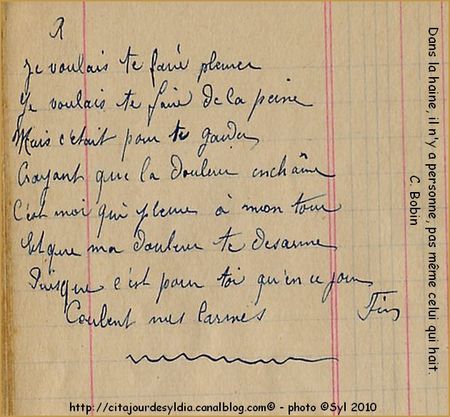 R
Je voulais te faire pleurer
Je voulais te faire de la peine
Mais c'était pour te garder
Croyant que la douleur enchaîne
C'est moi qui pleure à mon tour
Et que ma douleur te désarme
Puisque c'est pour toi qu'en ce jour
Coulent mes larmes
Fin
Dans la haine, il n'y a personne, pas même celui qui hait.
C. Bobin
http://citajourdesyldia.canalblog.com© - photo ©Syl 2010